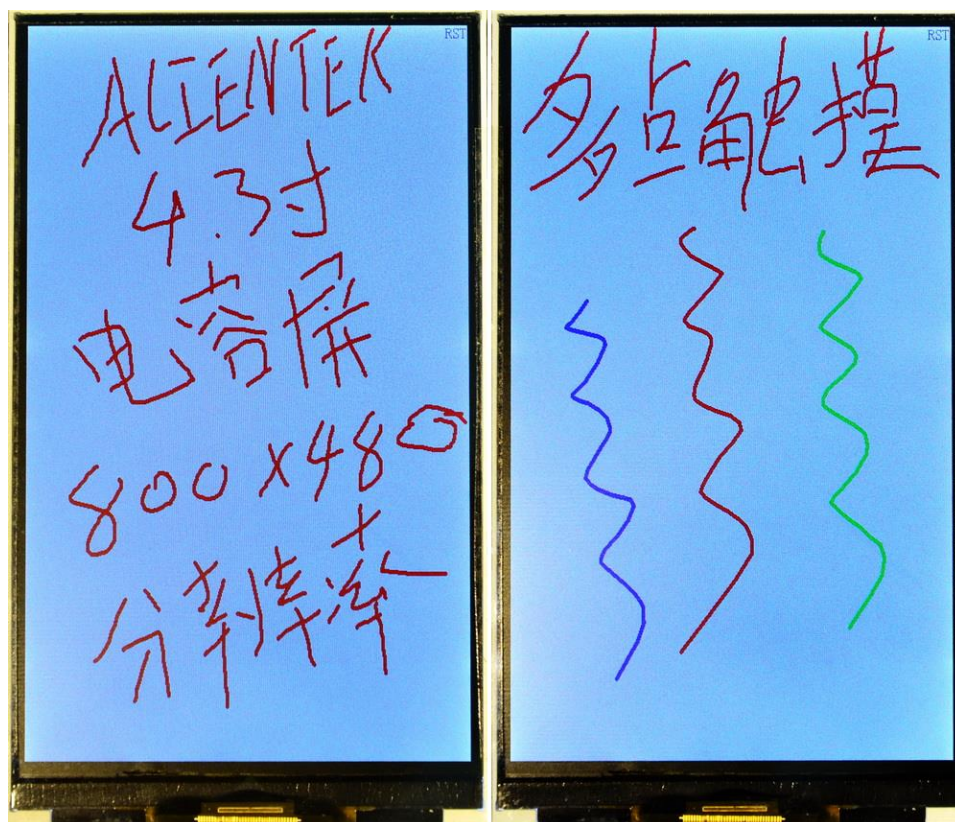 RST
ALIENTEK
4.3寸
电容屏
800×480
分辨率
RST
多点触摸